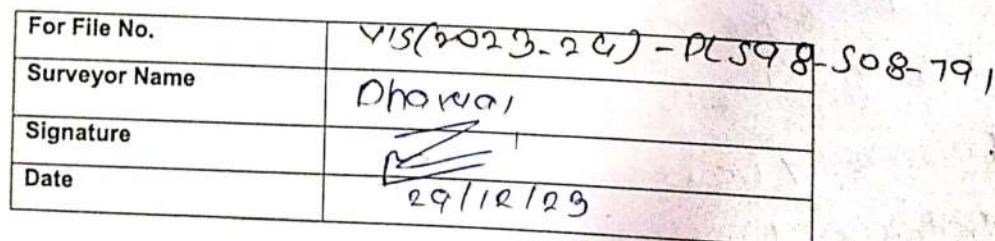 For File No. VIS(2023-24)-PL598-508-791
Surveyor Name Dhawal
Signature
Date 29/12/23